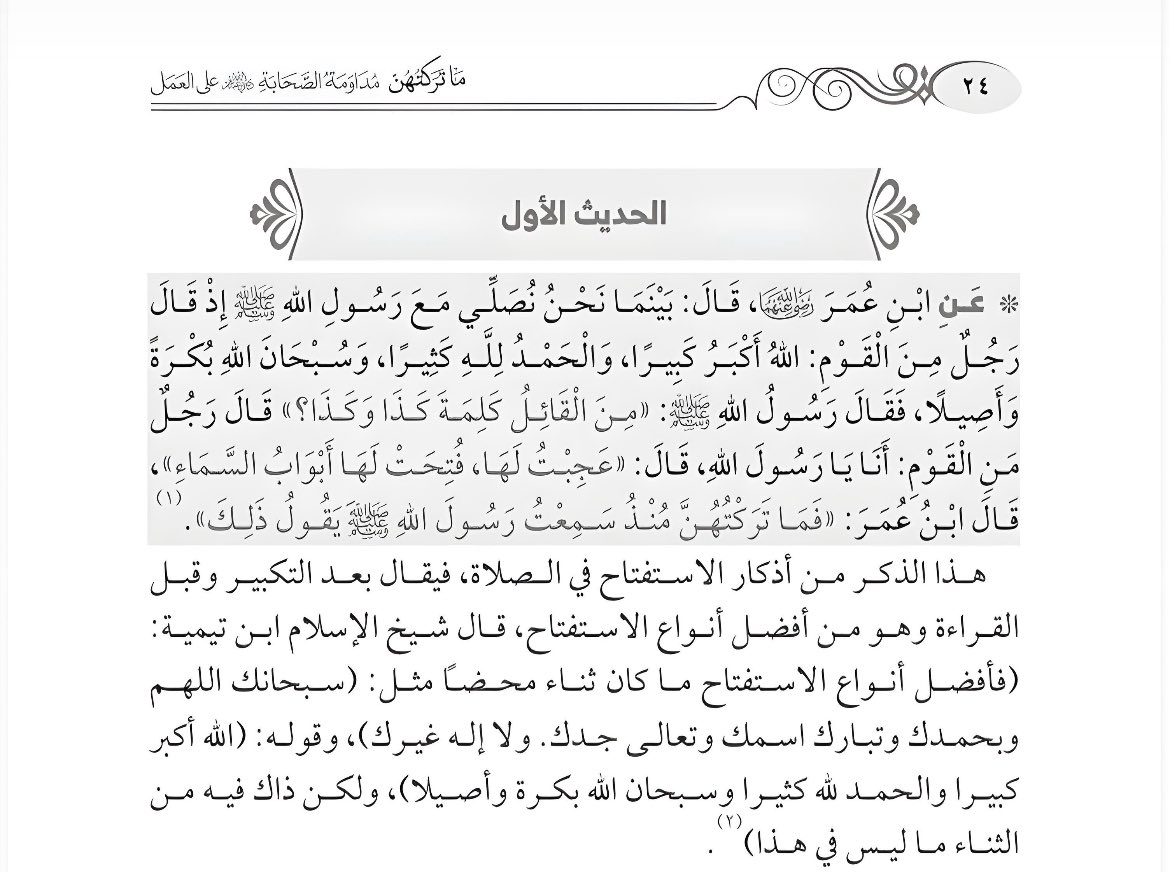 ٢٤
مَا تَرَكْتُهُنَّ مُدَاوَمَةُ الصَّحَابَةِ ﵃ عَلَى العَمَل
الحديث الأول
* عَنِ ابْنِ عُمَرَ ﵄، قَالَ: بَيْنَمَا نَحْنُ نُصَلِّي مَعَ رَسُولِ اللهِ ﷺ إِذْ قَالَ
رَجُلٌ مِنَ الْقَوْمِ: اللهُ أَكْبَرُ كَبِيرًا، وَالْحَمْدُ لِلَّهِ كَثِيرًا، وَسُبْحَانَ اللهِ بُكْرَةً
وَأَصِيلًا، فَقَالَ رَسُولُ اللهِ ﷺ: «مِنَ الْقَائِلُ كَلِمَةَ كَذَا وَكَذَا؟» قَالَ رَجُلٌ
مَنِ الْقَوْمِ: أَنَا يَا رَسُولَ اللهِ، قَالَ: «عَجِبْتُ لَهَا، فُتِحَتْ لَهَا أَبْوَابُ السَّمَاءِ»،
قَالَ ابْنُ عُمَرَ: «فَمَا تَرَكْتُهُنَّ مُنْذُ سَمِعْتُ رَسُولَ اللهِ ﷺ يَقُولُ ذَلِكَ».(١)
هذا الذكر من أذكار الاستفتاح في الصلاة، فيقال بعد التكبير وقبل
القراءة وهو من أفضل أنواع الاستفتاح، قال شيخ الإسلام ابن تيمية:
(فأفضل أنواع الاستفتاح ما كان ثناء محضاً مثل: (سبحانك اللهم
وبحمدك وتبارك اسمك وتعالى جدك. ولا إله غيرك)، وقوله: (الله أكبر
كبيرا والحمد لله كثيرا وسبحان الله بكرة وأصيلا)، ولكن ذاك فيه من
الثناء ما ليس في هذا)(٢).